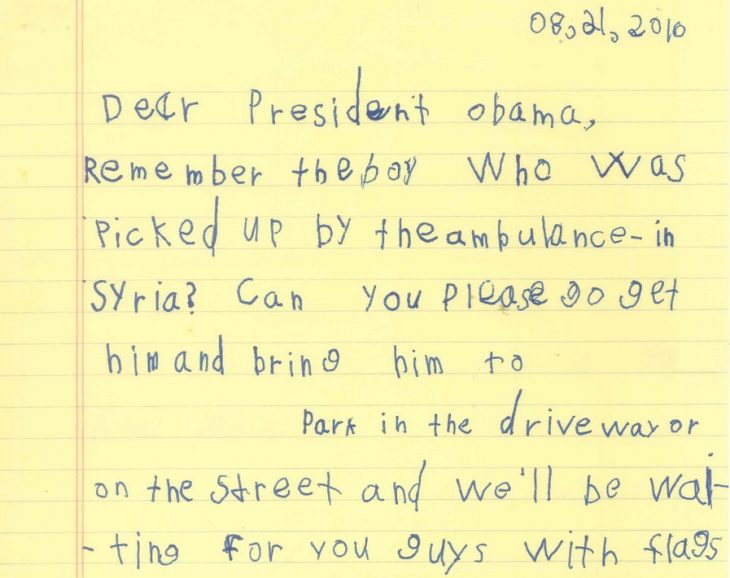 08,21,2010
Dear President obama,
Remember the boy who was
picked up by the ambulance-in
Syria? Can you please go get
him and bring him to
Park in the driveway or
on the street and we'll be wai-
-ting for you guys with flags